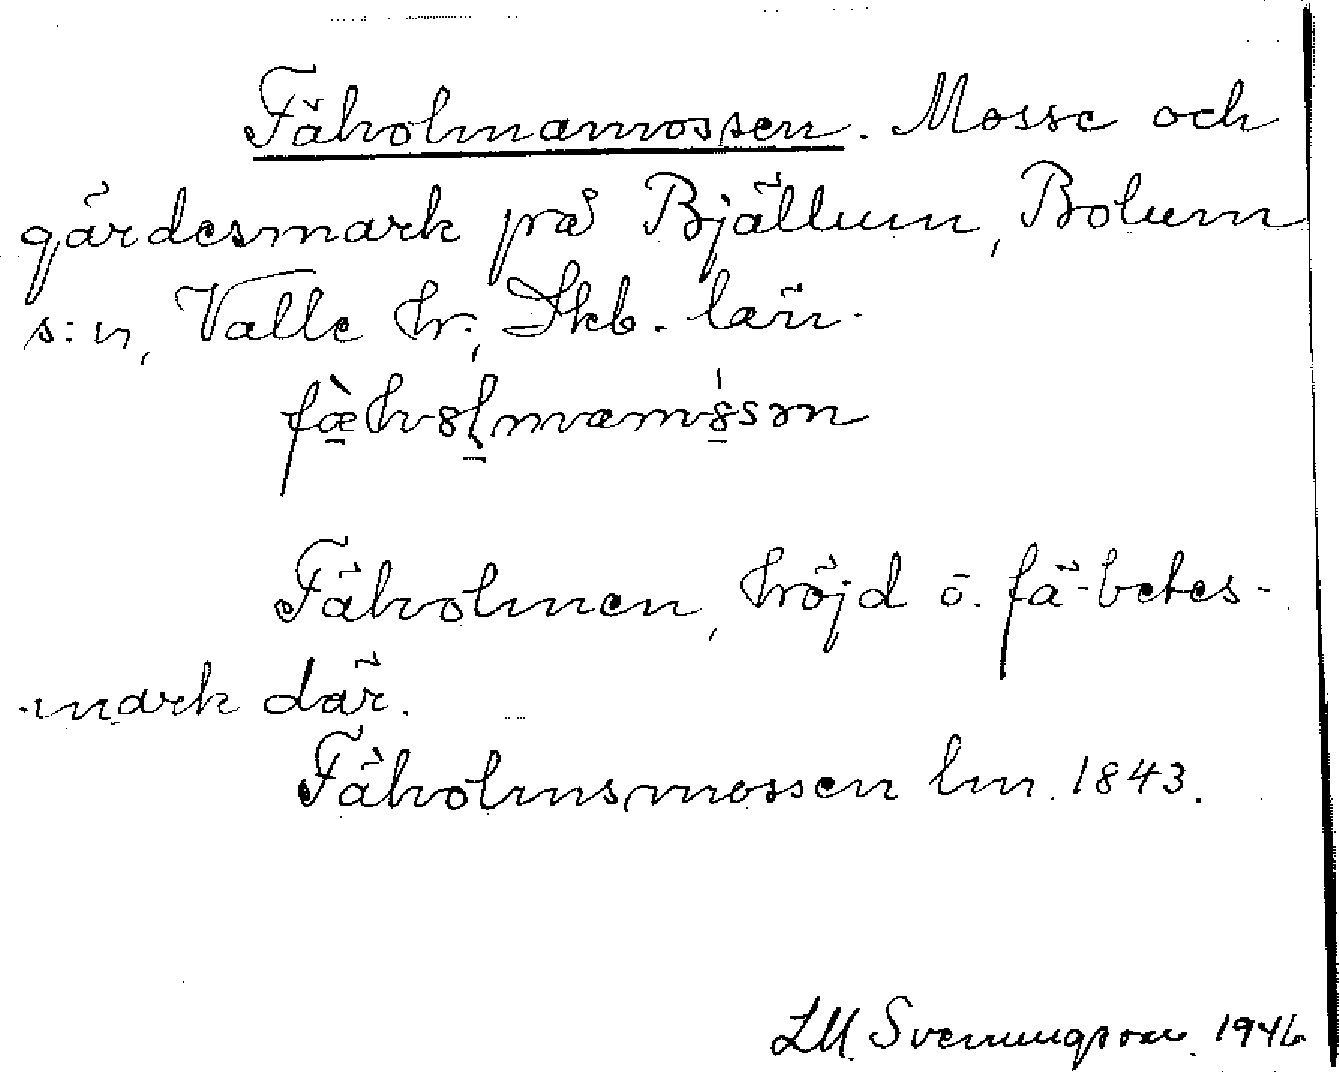 Fäholmamossen. Mosse och
gärdesmark på Bjällum, Bolum
s:n, Valle hr, Skb. län.
Fäholmen, höjd o. fä-betes-
mark där.
Fäholmsmossen lm. 1843.
LM. Svenungsson 1946